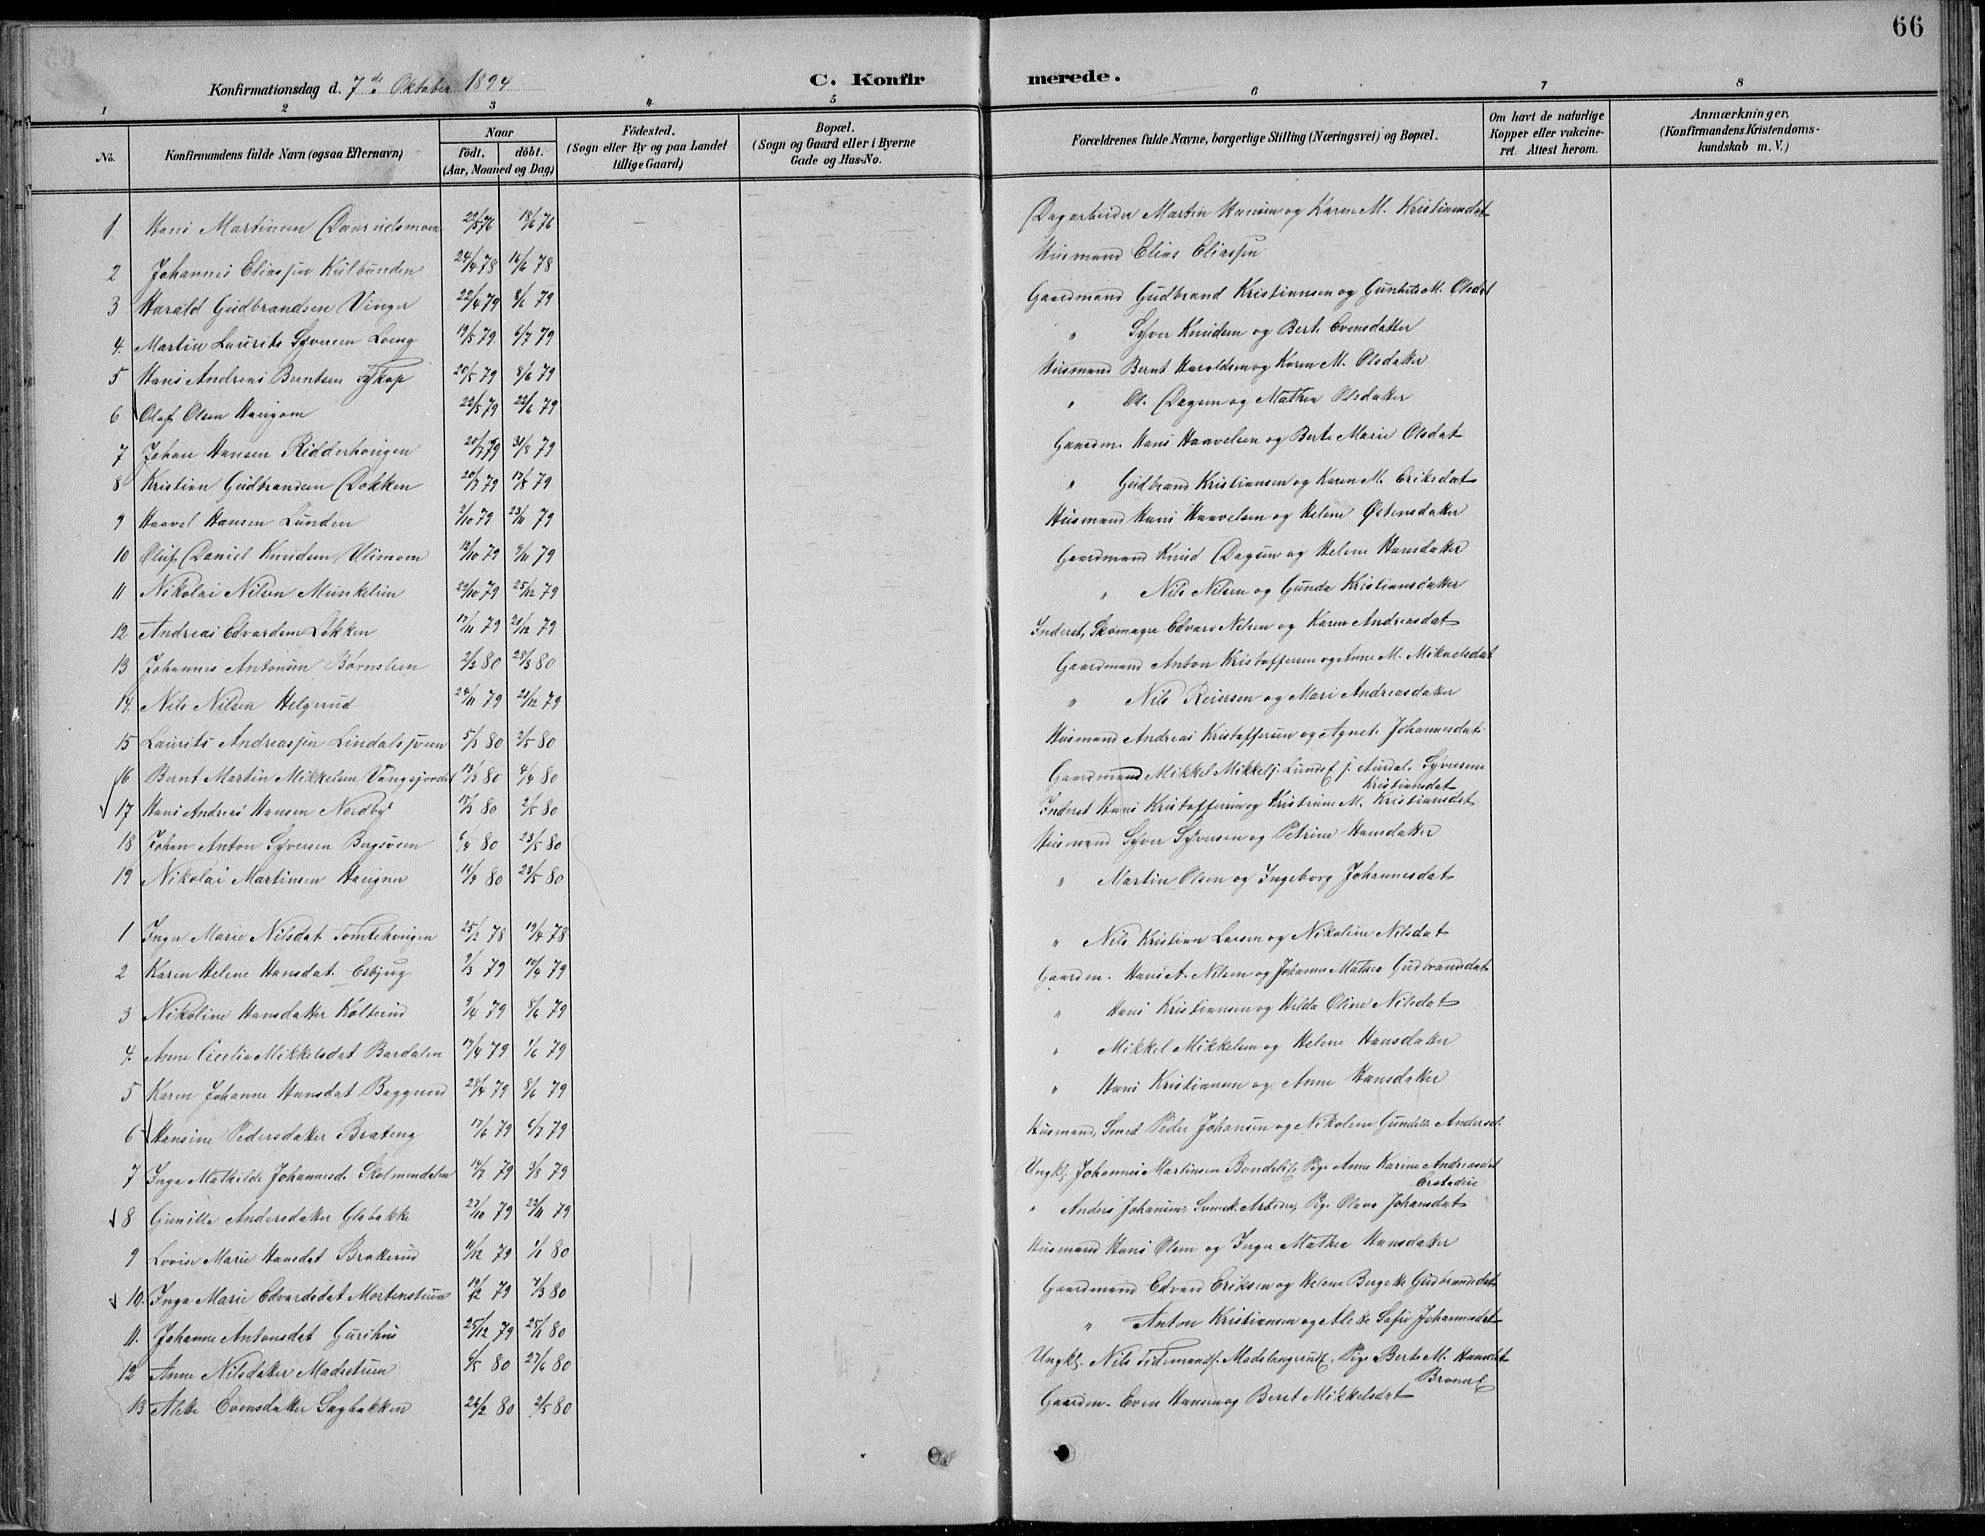 66
Konfirmationsdag d. 7de Oktober 1894
C. Konfirmerede.
1 2 3 4 5 6 7 8
No.
Konfirmandens fulde Navn (ogsaa Efternavn)
Naar
födt. döbt.
(Aar, Maaned og Dag)
Födested.
(Sogn eller By og paa Landet tillige Gaard)
Bopæl.
(Sogn og Gaard eller i Byerne Gade og Hus-No.
Forældrenes fulde Navne, borgerlige Stilling (Næringsvei) og Bopæl.
Om havt de naturlige Kopper eller vakcineret. Attest herom.
Anmærkninger.
(Konfirmandens Kristendomskundskab m. V.)
1 Hans Martinsen 76 18/6 76 Dagarbeider Martin Hansen og Karen M. Kristiansdat
2 Johannes Eliassen 24/4 78 16/6 78 Husmand Elias Eliassen
3 Harald Gudbrandsen Vinger 22/4 79 8/6 79 Gaardmand Gudbrand Kristiansen og M. Olsdat
4. Martin Laurits Syversen Loeng 19/5 79 6/7 79 " Syver Knudsen og Berte Evensdatter
5 Hans Andreas Berntsen 20/5 79 8/6 79 Husmand Bernt Haroldsen og Karen M. Olsdatter
6 Olaf Olsen Haugom 22/5 79 22/6 79 " Ol. Dagsen og Mathea Olsdatter
7 Johan Hansen Ridderhougen 20/7 79 31/8 79 Gaardm. Hans Haavelsen og Berte Marie Olsdat
8 Kristian Gudbrandsen Dokken 20/7 79 17/8 79 " Gudbrand Kristiansen og Karen M. Eriksdat
9 Haavel Hansen Lunden 2/10 79 23/11 79 Husmand Hans Haavelsen og Helene Østensdatter
10 Oluf Daniel Knudsen Ulimoen 12/10 79 9/11 79 Gaardmand Knud Dagsen og Helene Hansdatter
11 Nikolai Nilsen 22/10 79 25/12 79 " Nils Nilsen og Gunda Kristiansdatter
12 Andreas Edvardsen Løkken 17/11 79 21/12 79 Inderst, Skomager Edvard Nilsen og Karen Andreasdat
13 Johannes Antonsen Børnslien 2/2 80 28/3 80 Gaardmand Anton Kristoffersen og Anne M. Mikaelsdat
14. Nils Nilsen Helgerud 24/11 79 21/12 79 " Nils Reiersen og Mari Andreasdatter
15 Laurits Andreassen 5/3 80 2/5 80 Husmand Andreas Kristoffersen og Agnete Johannesdat
16 Bernt Martin Mikkelsen Vangsjordet 13/3 80 4/4 80 Gaardmand Mikkel Mikkels. Syversen
Kristiansdat
17 Hans Andreas Hansen Nordby 80 2/5 80 Inderst Hans Kristoffersen og Kristine M. Kristiansdat
18 Johan Anton Syversen 6/4 80 23/5 80 Husmand Syver Syversen og Petrine Hansdatter
19 Nikolai Martinsen Haugner 80 23/5 80 " Martin Olsen og Ingeborg Johannesdat
1 Inger Marie Nilsdat Tomtehougen 25/2 78 19/4 78 " Nils Kristian Larsen og Nikoline Nilsdat
2 Karen Helene Hansdat. Esbjug 9/3 79 79 Gaardm. Hans A. Nilsen og Johanne Mathea Gudbrandsdat
3 Nikoline Hansdatter Kolterud 9/4 79 8/6 79 " Hans Kristiansen og Hilda Oline Nilsdat
4. Anne Cicelia Mikkelsdat Bardalen 17/4 79 1/6 79 " Mikkel Mikkelsen og Helene Hansdatter
5 Karen Johanne Hansdat Baggerud 28/4 79 8/6 79 " Hans Kristiansen og Anne Hansdatter
6 Hansine Pedersdatter Brateng 17/6 79 6/7 79 Husmand, Smed Peder Johansen og Nikoline Gundelle Andersd.
7 Inga Mathilde Johannesd. Skolmendalen 14/7 79 3/8 79 Ungkl. Johannes Martinsen Pige Anne Karine Andreasdat
8 Gunille Andersdatter Glabakke 27/10 79 23/11 79 " Anders Johansen, Svensk Arbeider, Pige Olava Johansdat
9 Lovise Marie Hansdat Brakerud 11/12 79 1/1 80 Husmand Hans Olsen og Inger Mathea Hansdatter
10. Inga Marie Edvardsdat Mortenstuen 79 7/3 80 Gaardmand Edvard Eriksen og Helene Bergette Gudbrandsdat
11. Johanne Antonsdat Gurihus 25/12 79 25/1 80 " Anton Kristiansen og Alette Sofie Johannesdat
12 Anne Nilsdatter Madsstuen 6/5 80 27/6 80 Ungkl. Nils Pige Berte M. Hansdat
13 Alette Evensdatter Sagbakken 26/2 80 2/5 80 Gaardm. Even Hansen og Beret Mikkelsdat